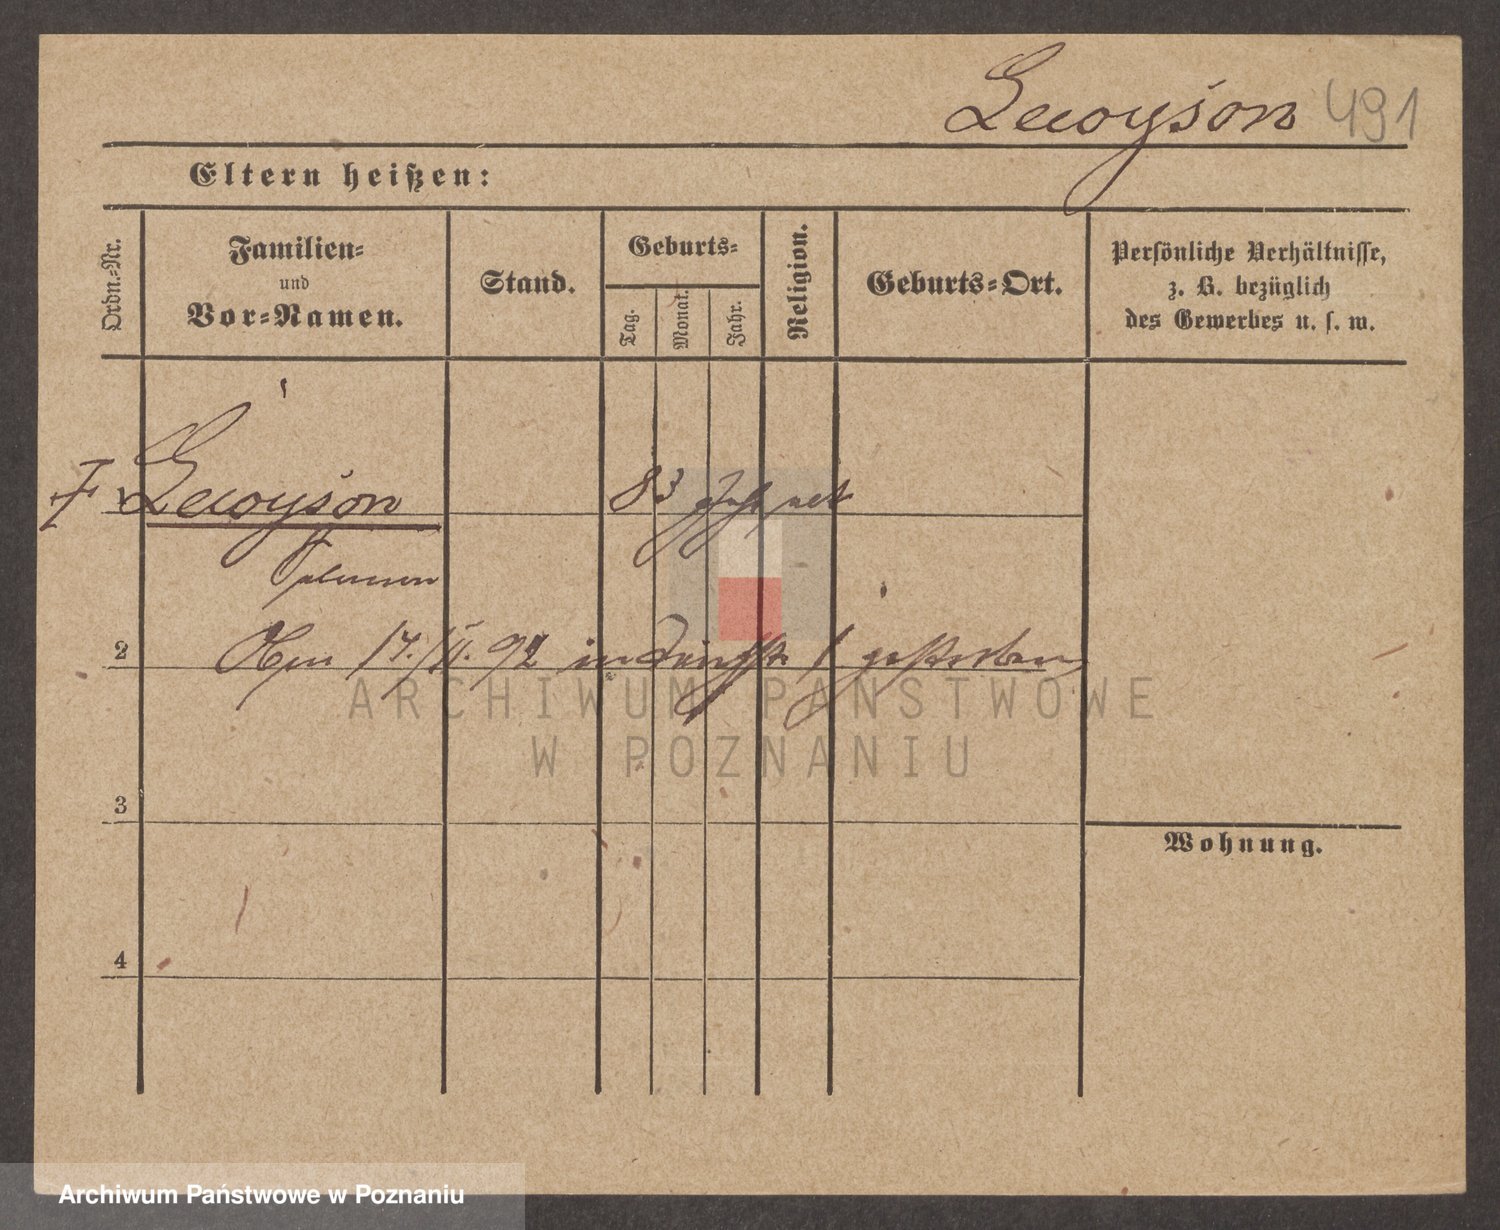 Lewysohn 491
Eltern heißen:
Ordn.=Nr.
Familien=
und
Vor=Namen.
Stand.
Geburts=
Tag.
Monat.
Jahr.
Religion.
Geburts=Ort.
Persönliche Verhältnisse,
z. B. bezüglich
des Gewerbes u. s. w.
83 Jahr alt
2
Am 17./II. 92 in gestorben
3
4
Wohnung.
ARCHIWUM PAŃSTWOWE
W POZNANIU
Archiwum Państwowe w Poznaniu